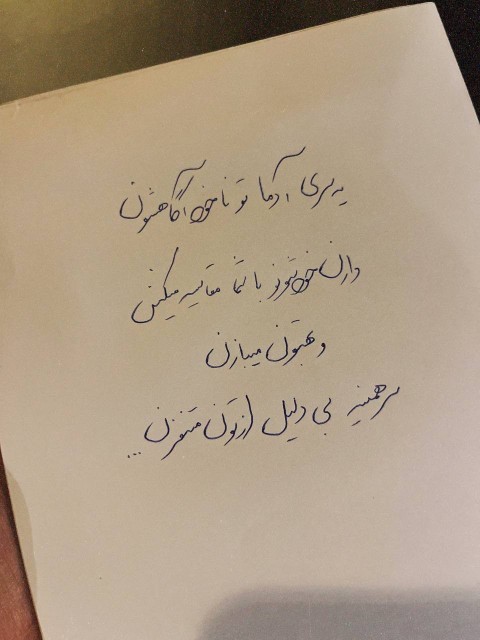 یه سری آدما تو ناخودآگاهشون
دارن خودشونو با شما مقایسه میکنن
و بهتون میبازن
سر همینه بی دلیل ازتون متنفرن...